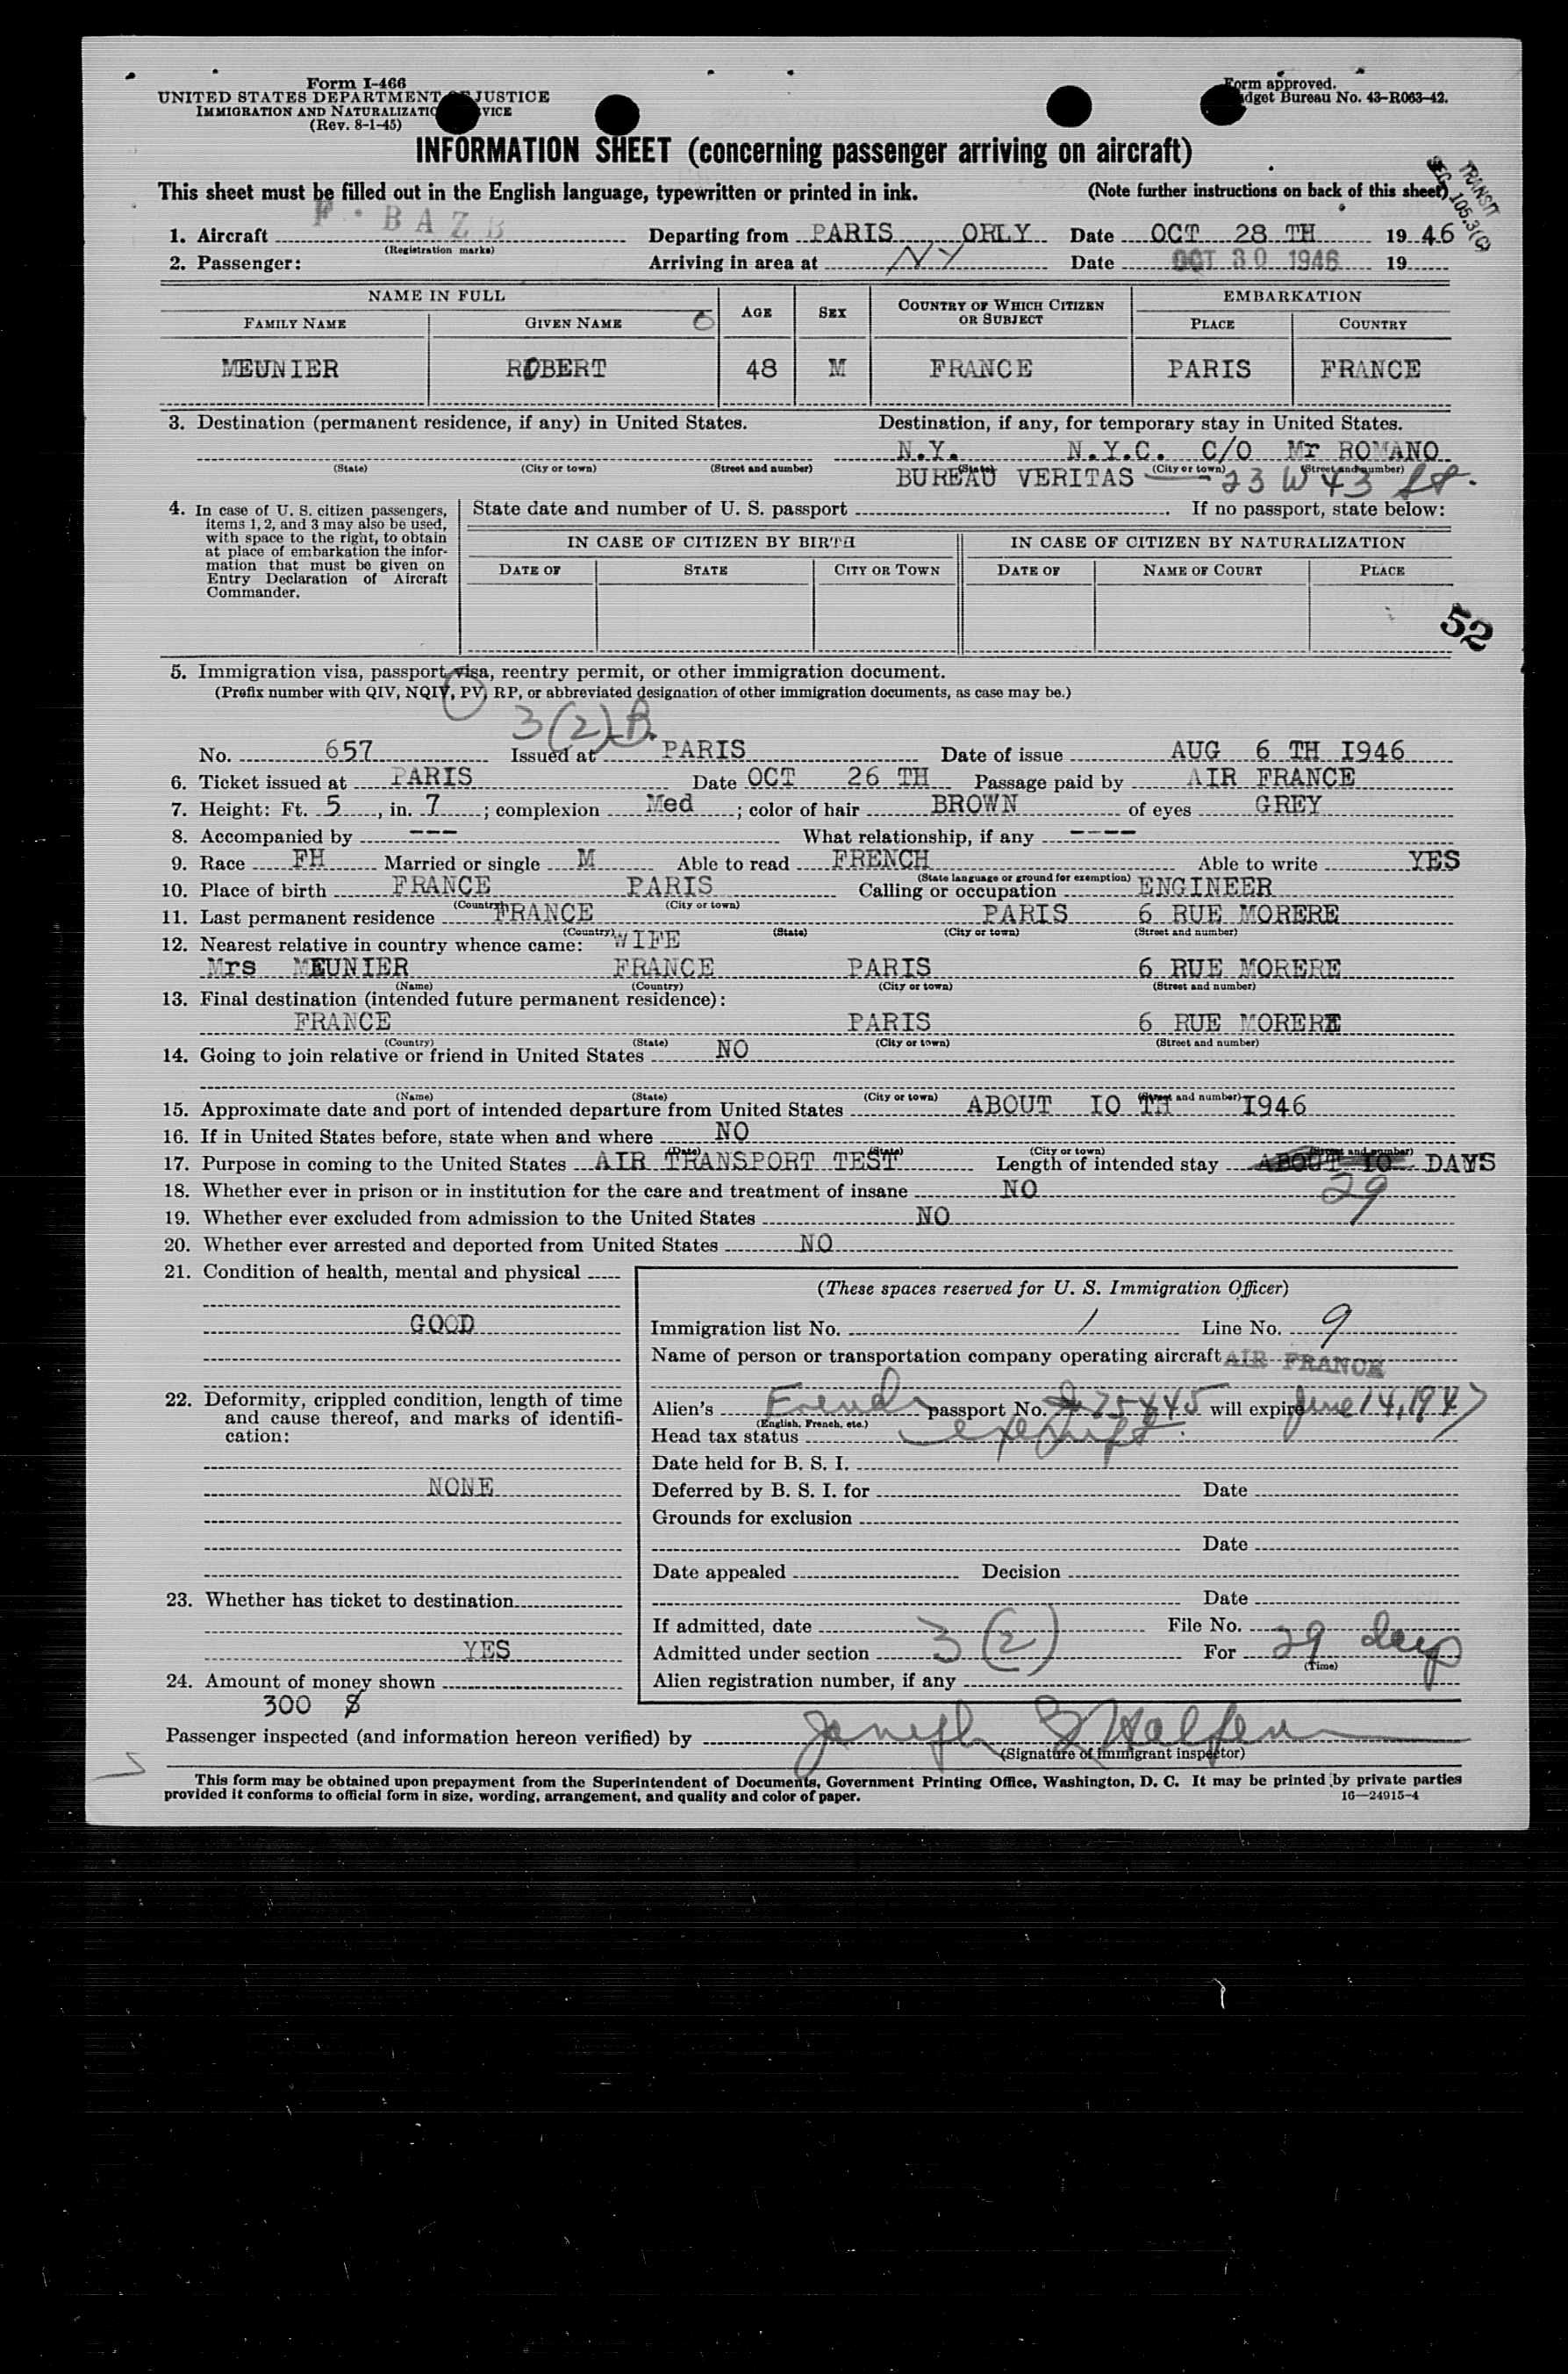 Form I-466
UNITED STATES DEPARTMENT OF JUSTICE
IMMIGRATION AND NATURALIZATION SERVICE
(Rev. 8-1-45)
Form approved.
Budget Bureau No. 43-R063-42.
INFORMATION SHEET (concerning passenger arriving on aircraft)
This sheet must be filled out in the English language, typewritten or printed in ink. (Note further instructions on back of this sheet)
TRANSIT
SEC. 105.3(C)
1. Aircraft F-BAZB Departing from PARIS ORLY Date OCT 28 TH 1946
(Registration marks)
2. Passenger: Arriving in area at NY Date OCT 30 1946 19
NAME IN FULL AGE SEX COUNTRY OF WHICH CITIZEN OR SUBJECT EMBARKATION
FAMILY NAME GIVEN NAME PLACE COUNTRY
MEUNIER ROBERT 48 M FRANCE PARIS FRANCE
3. Destination (permanent residence, if any) in United States. Destination, if any, for temporary stay in United States.
N.Y. N.Y.C. C/O Mr ROMANO
(State) (City or town) (Street and number) (State) (City or town) (Street and number)
BUREAU VERITAS — 23 W 43 St.
4. In case of U. S. citizen passengers, items 1, 2, and 3 may also be used, with space to the right, to obtain at place of embarkation the information that must be given on Entry Declaration of Aircraft Commander.
State date and number of U. S. passport . If no passport, state below:
IN CASE OF CITIZEN BY BIRTH IN CASE OF CITIZEN BY NATURALIZATION
DATE OF STATE CITY OR TOWN DATE OF NAME OF COURT PLACE
52
5. Immigration visa, passport visa, reentry permit, or other immigration document.
(Prefix number with QIV, NQIV, PV, RP, or abbreviated designation of other immigration documents, as case may be.)
3(2) B.
No. 657 Issued at PARIS Date of issue AUG 6 TH I946
6. Ticket issued at PARIS Date OCT 26 TH Passage paid by AIR FRANCE
7. Height: Ft. 5, in. 7; complexion Med; color of hair BROWN of eyes GREY
8. Accompanied by --- What relationship, if any ----
9. Race FH Married or single M Able to read FRENCH Able to write YES
(State language or ground for exemption)
10. Place of birth FRANCE PARIS Calling or occupation ENGINEER
(Country) (City or town)
11. Last permanent residence FRANCE PARIS 6 RUE MORERE
(Country) (State) (City or town) (Street and number)
12. Nearest relative in country whence came: WIFE
Mrs MEUNIER FRANCE PARIS 6 RUE MORERE
(Name) (Country) (City or town) (Street and number)
13. Final destination (intended future permanent residence):
FRANCE PARIS 6 RUE MORERE
(Country) (State) (City or town) (Street and number)
14. Going to join relative or friend in United States NO
(Name) (State) (City or town) (Street and number)
15. Approximate date and port of intended departure from United States ABOUT IO TH I946
16. If in United States before, state when and where NO
(Date) (State) (City or town) (Street and number)
17. Purpose in coming to the United States AIR TRANSPORT TEST Length of intended stay ABOUT IO DAYS
29
18. Whether ever in prison or in institution for the care and treatment of insane NO
19. Whether ever excluded from admission to the United States NO
20. Whether ever arrested and deported from United States NO
21. Condition of health, mental and physical
GOOD
22. Deformity, crippled condition, length of time and cause thereof, and marks of identification:
NONE
23. Whether has ticket to destination
YES
24. Amount of money shown
300 $
(These spaces reserved for U. S. Immigration Officer)
Immigration list No. 1 Line No. 9
Name of person or transportation company operating aircraft AIR FRANCE
Alien's French passport No. 25445 will expire June 14, 1947
(English, French, etc.)
Head tax status exempt
Date held for B. S. I.
Deferred by B. S. I. for Date
Grounds for exclusion
Date
Date appealed Decision
Date
If admitted, date File No.
Admitted under section 3(2) For 29 days
(Time)
Alien registration number, if any
Passenger inspected (and information hereon verified) by Joseph
(Signature of immigrant inspector)
This form may be obtained upon prepayment from the Superintendent of Documents, Government Printing Office, Washington, D. C. It may be printed by private parties
provided it conforms to official form in size, wording, arrangement, and quality and color of paper. 16—24915-4